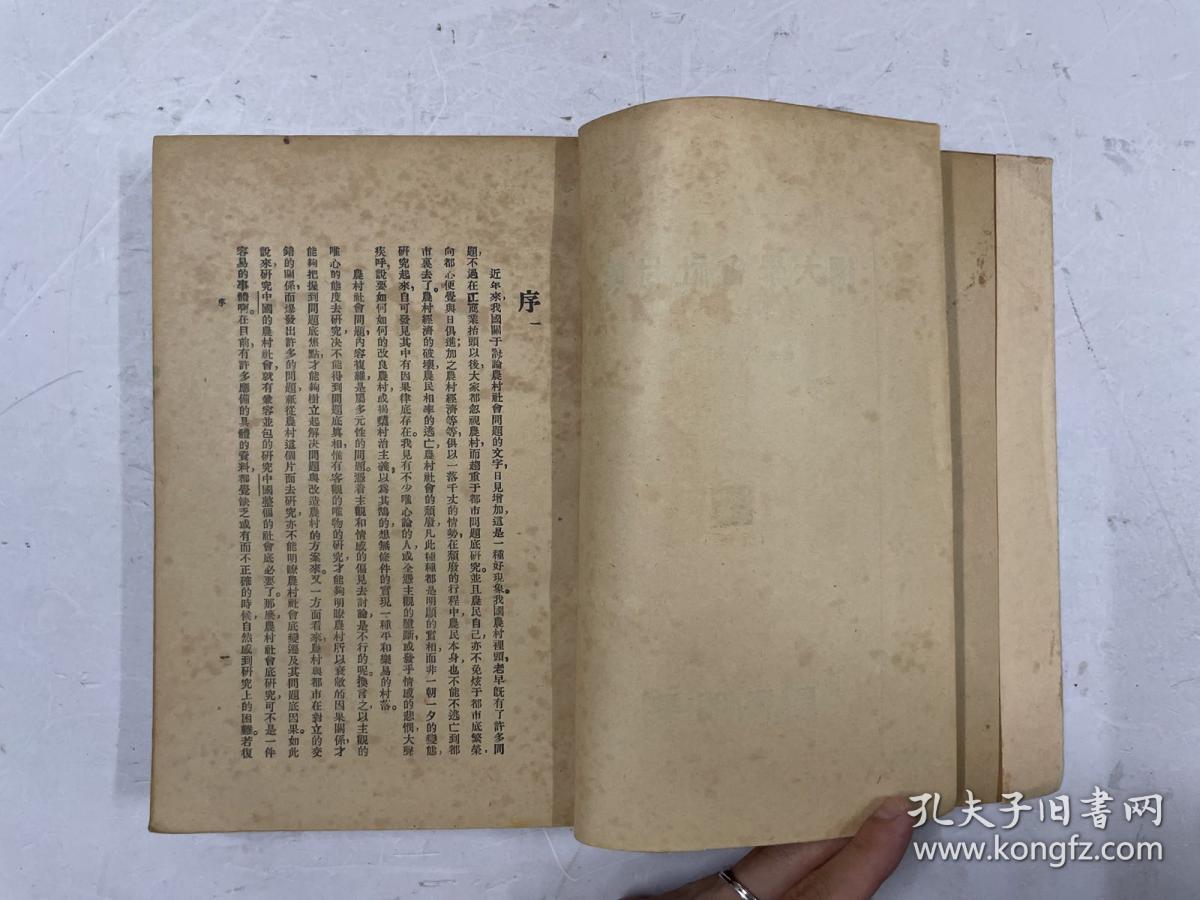 序一
近年來,我國關于討論農村社會問題的文字,日見增加,這是一種好現象。我國農村裡頭,老早旣有了許多問
題,不過在工商業抬頭以後,大家都忽視農村,而趨重于都市問題底研究。並且農民自己亦不免炫于都市底繁榮,
向都心便覺與日俱進;加之農村經濟等等,俱以一落千丈的情勢,在頹廢的行程中,農民本身也不能不逃亡到都
市裏去了。農村經濟的破壞,農民相率的逃亡,農村社會的頹廢,凡此種種,都是明顯的實相,而非一朝一夕的變態,
研究起來,自可發見其中有因果律底存在。我見有不少唯心論的人,或全憑主觀的臆斷,或發乎情感的悲憫,大聲
疾呼,說要如何如何的改良農村,或揭櫫村治主義,以爲其鵠的,想無條件的實現一種平和樂易的村落。
農村社會問題,內容複雜,是屬多元性的問題。憑着主觀和情感的偏見去討論是不行的呢。換言之,以主觀的
唯心的態度去研究,决不能得到問題底眞相,惟有客觀的唯物的研究,才能夠明瞭農村所以衰敝的因果關係,才
能夠把握到問題底焦點,才能夠樹立起解决問題與改造農村的方案來。又一方面看來,農村與都市在對立的交
錯的關係,而爆發出許多的問題,祇從農村這個片面去研究,亦不能明瞭農村社會底變遷及其問題底因果。如此
說來,研究中國的農村社會,就有兼容並包的研究中國整個的社會底必要了。那麽,農村社會底研究,可不是一件
容易的事體啊!在目前有許多應備的具體的資料,都覺缺乏,或有而不正確的時候,自然感到研究上的困難。若復
序
一
孔夫子旧书网
www.kongfz.com